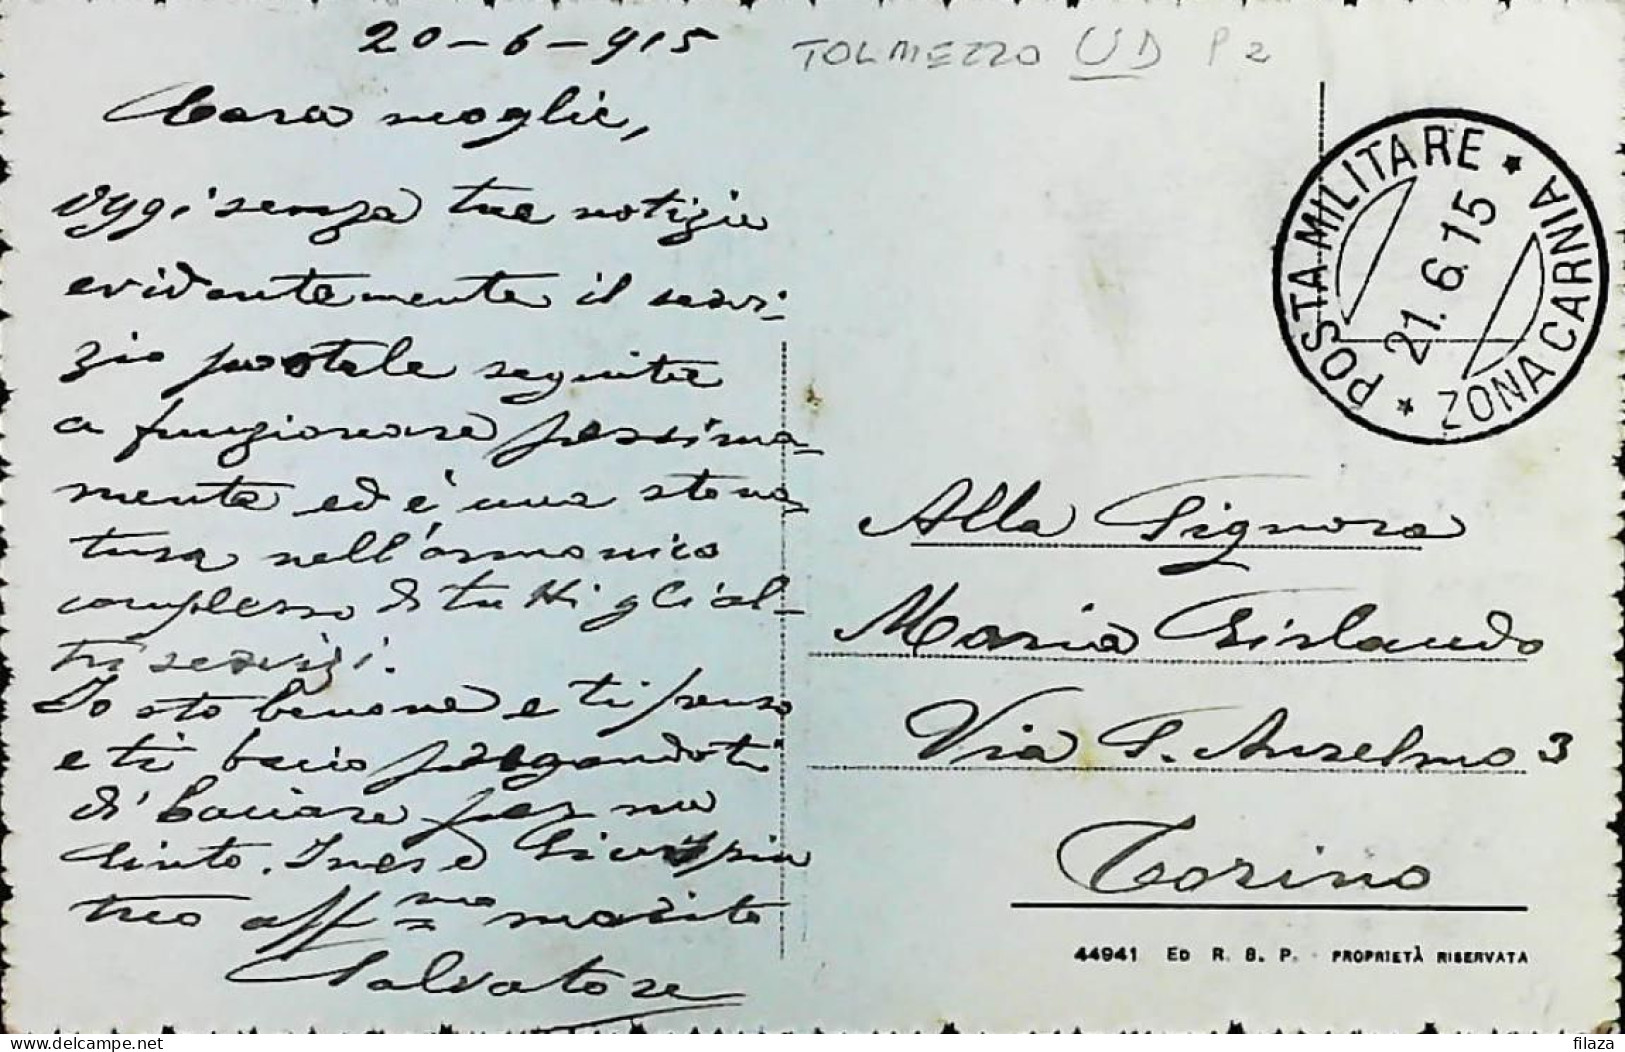 20-6-915
TOLMEZZO UD P 2
Cara moglie,
oggi senza tue notizie
evidentemente il servi-
zio postale seguita
a funzionare pessima-
mente ed è una stona-
tura nell'armonico
complesso di tutti gli al-
tri servizi.
Io sto benone e ti penso
e ti bacio pregandoti
di baciare per me
Tinto, Ines e Giuseppina
tuo aff mo marito
Salvatore
POSTA MILITARE
21.6.15
ZONA CARNIA
Alla Signora
Maria Gislando
Via S. Anselmo 3
Torino
44941 ED R. B. P. - PROPRIETÀ RISERVATA
delcampe.net
filaza